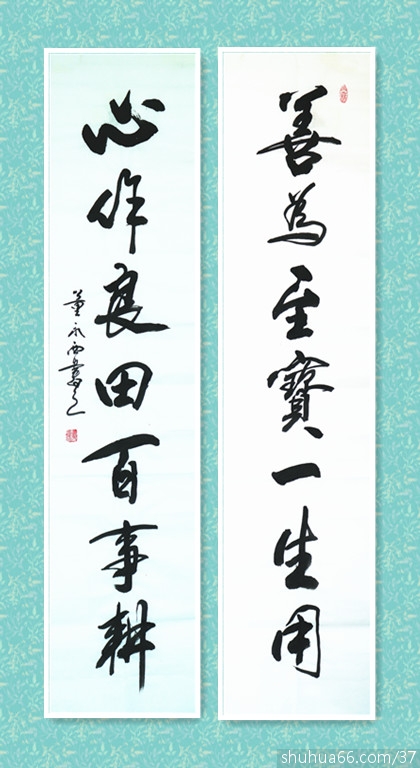 善為至寶一生用
心作良田百事耕
董永西書之
shuhua66.com/37